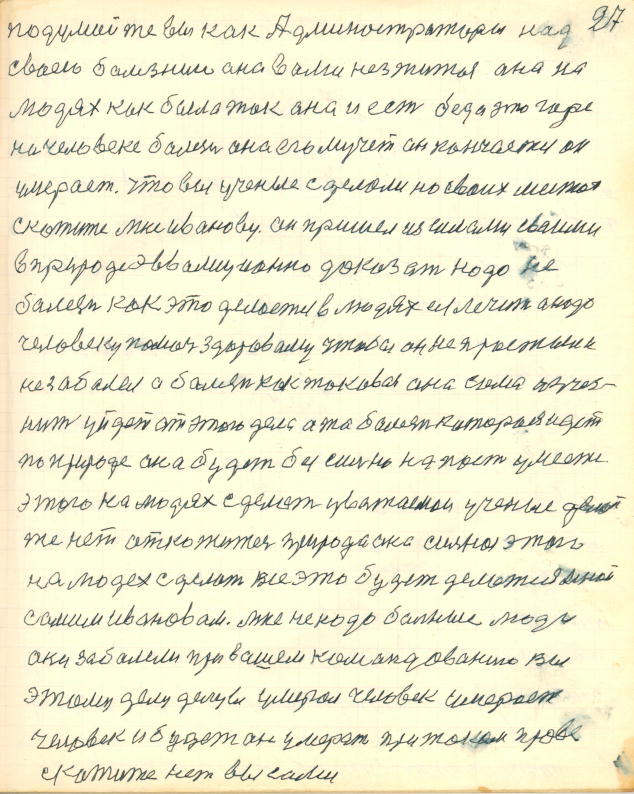 подумайте вы как Администраторы над 27
своею болезнию она вами незжитоя она на
людях как была так она и есть беда это горе
на человеке балезн она его мучет он кончаетя он
умерает. что вы ученые сделали на своих местах
скажите мне иванову. он пришел из силами сваими
в природе Эввалиционно доказат надо не
балезн как это делаетя в людях ел лечит а надо
человеку помоч здороваму чтобы он не простыл и
незаболел а балезн как таковая она сама изчез-
нит уйдет от этого дела а та балезн которая идет
по природе она будет бессильно напост уместе
этого на людях сделат уважаемаи ученые
же нет откожитя природа ска сильноя этого
на людех сделат все это будет делатися мной
самим ивановам. мне ненадо балные люди
они заболели при вашем командованию вы
этому делу умерал человек умерает
человек и будет он умерат при таком
скажите нет вы сами